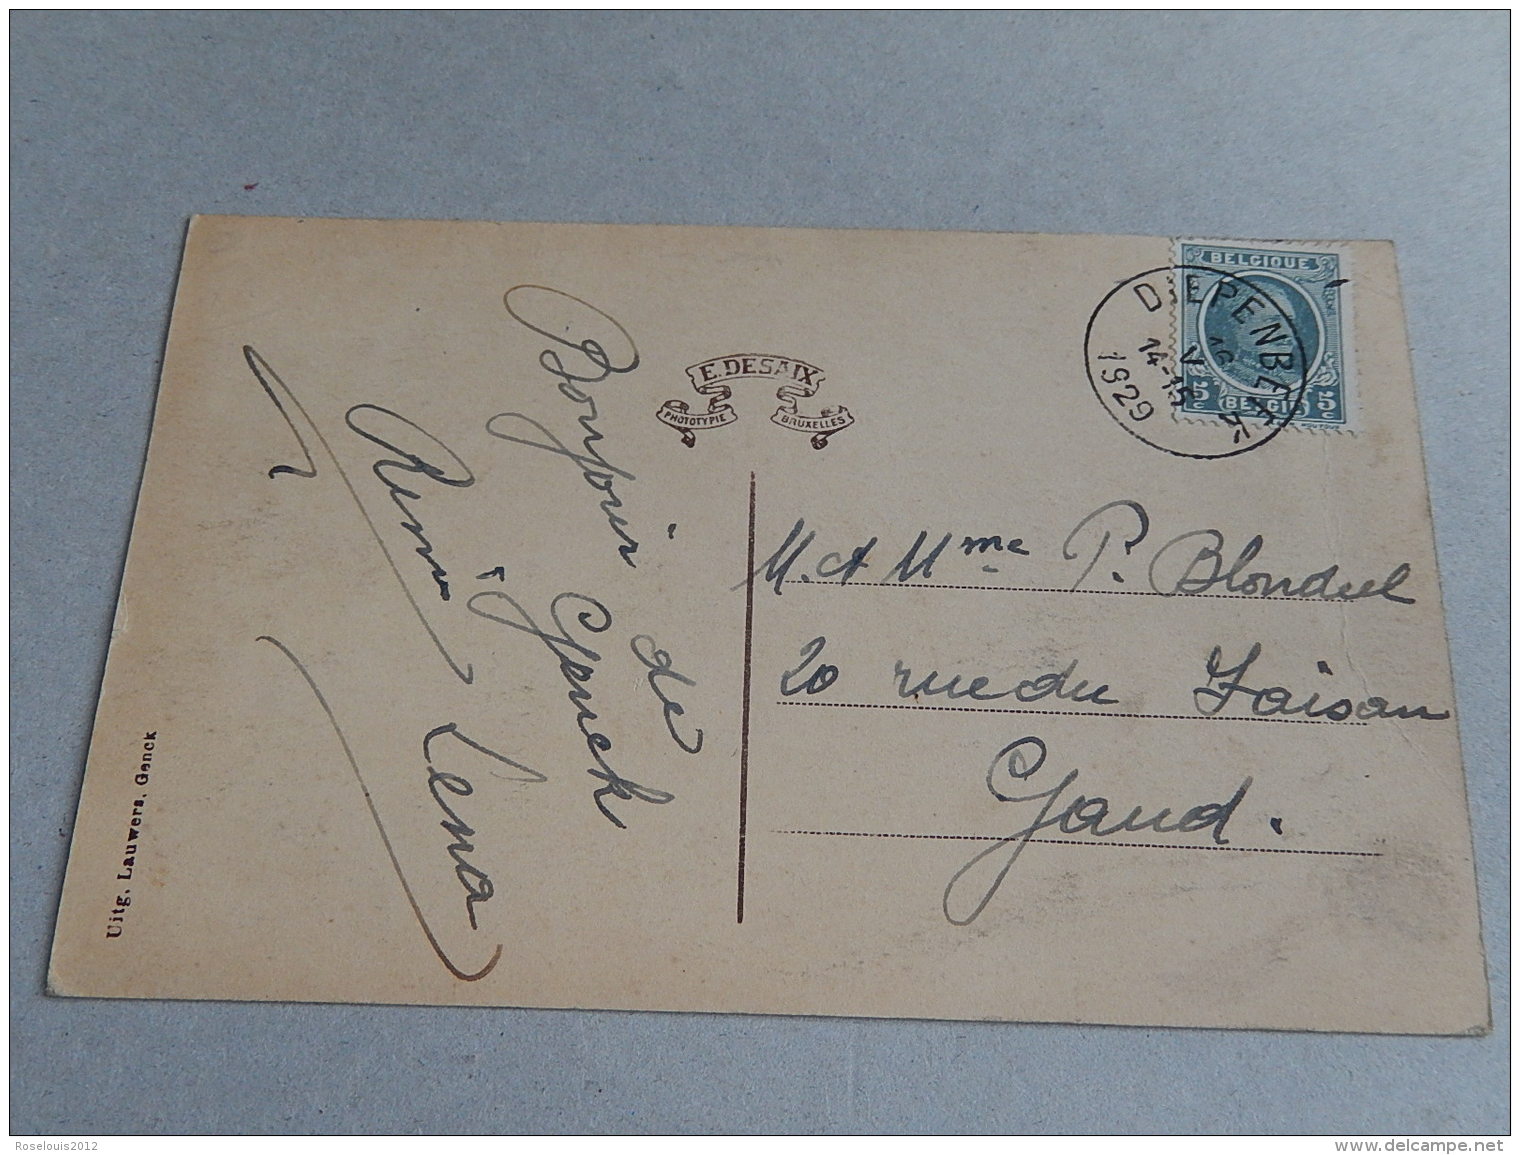 Bonjour de
Genck
Remi Lena
Uitg. Lauwers, Genck
E. DESAIX
PHOTOTYPIE BRUXELLES
BELGIQUE
5c BELGIË 5c
DIEPENBEEK
16 V
14-15
1929
M. et Mme P. Blondeel
20 rue du Faisan
Gand.
Roselouis2012
www.delcampe.net